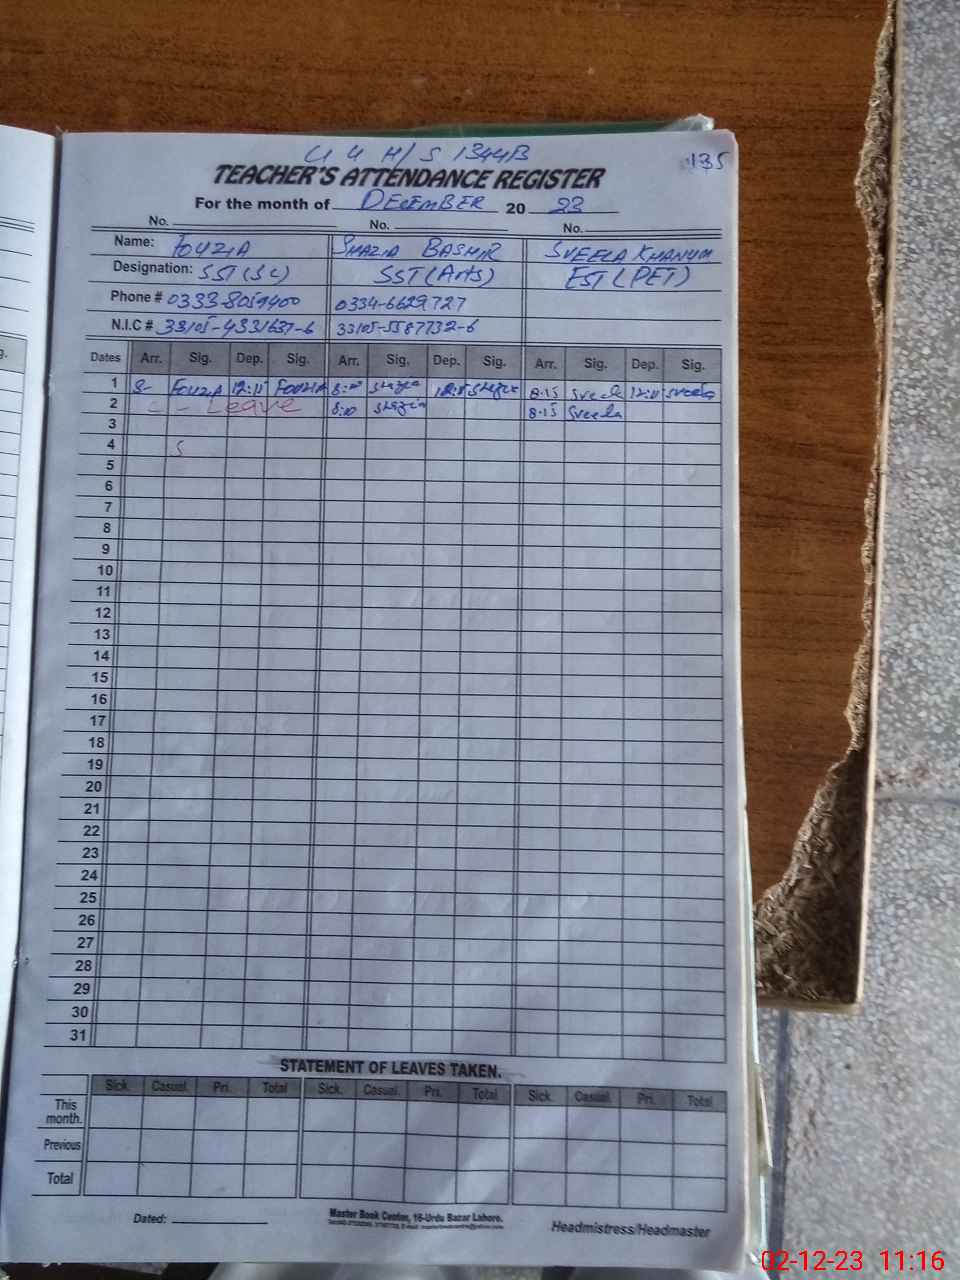 G G H/S 134GB
135
TEACHER'S ATTENDANCE REGISTER
For the month of DECEMBER 20 23
No. No. No.
Name: FOUZIA SHAZIA BASHIR SVEELA KHANUM
Designation: SST(SC) SST(Arts) EST(PET)
Phone # 0333-8059400 0334-6629727
N.I.C # 33105-4331637-6 33105-5587732-6
Dates Arr. Sig. Dep. Sig. Arr. Sig. Dep. Sig. Arr. Sig. Dep. Sig.
1 8- FOUZIA 12:15 FOUZIA 8:10 Shazia Shazia 8.15 Sveela Sveela
2 C - Leave 8:10 Shazia 8.15 Sveela
3
4 S
5
6
7
8
9
10
11
12
13
14
15
16
17
18
19
20
21
22
23
24
25
26
27
28
29
30
31
STATEMENT OF LEAVES TAKEN.
Sick. Casual. Pri. Total Sick. Casual. Pri. Total Sick. Casual. Pri. Total
This month.
Previous
Total
Dated: Master Book Center, 16-Urdu Bazar Lahore. Headmistress/Headmaster
02-12-23 11:16